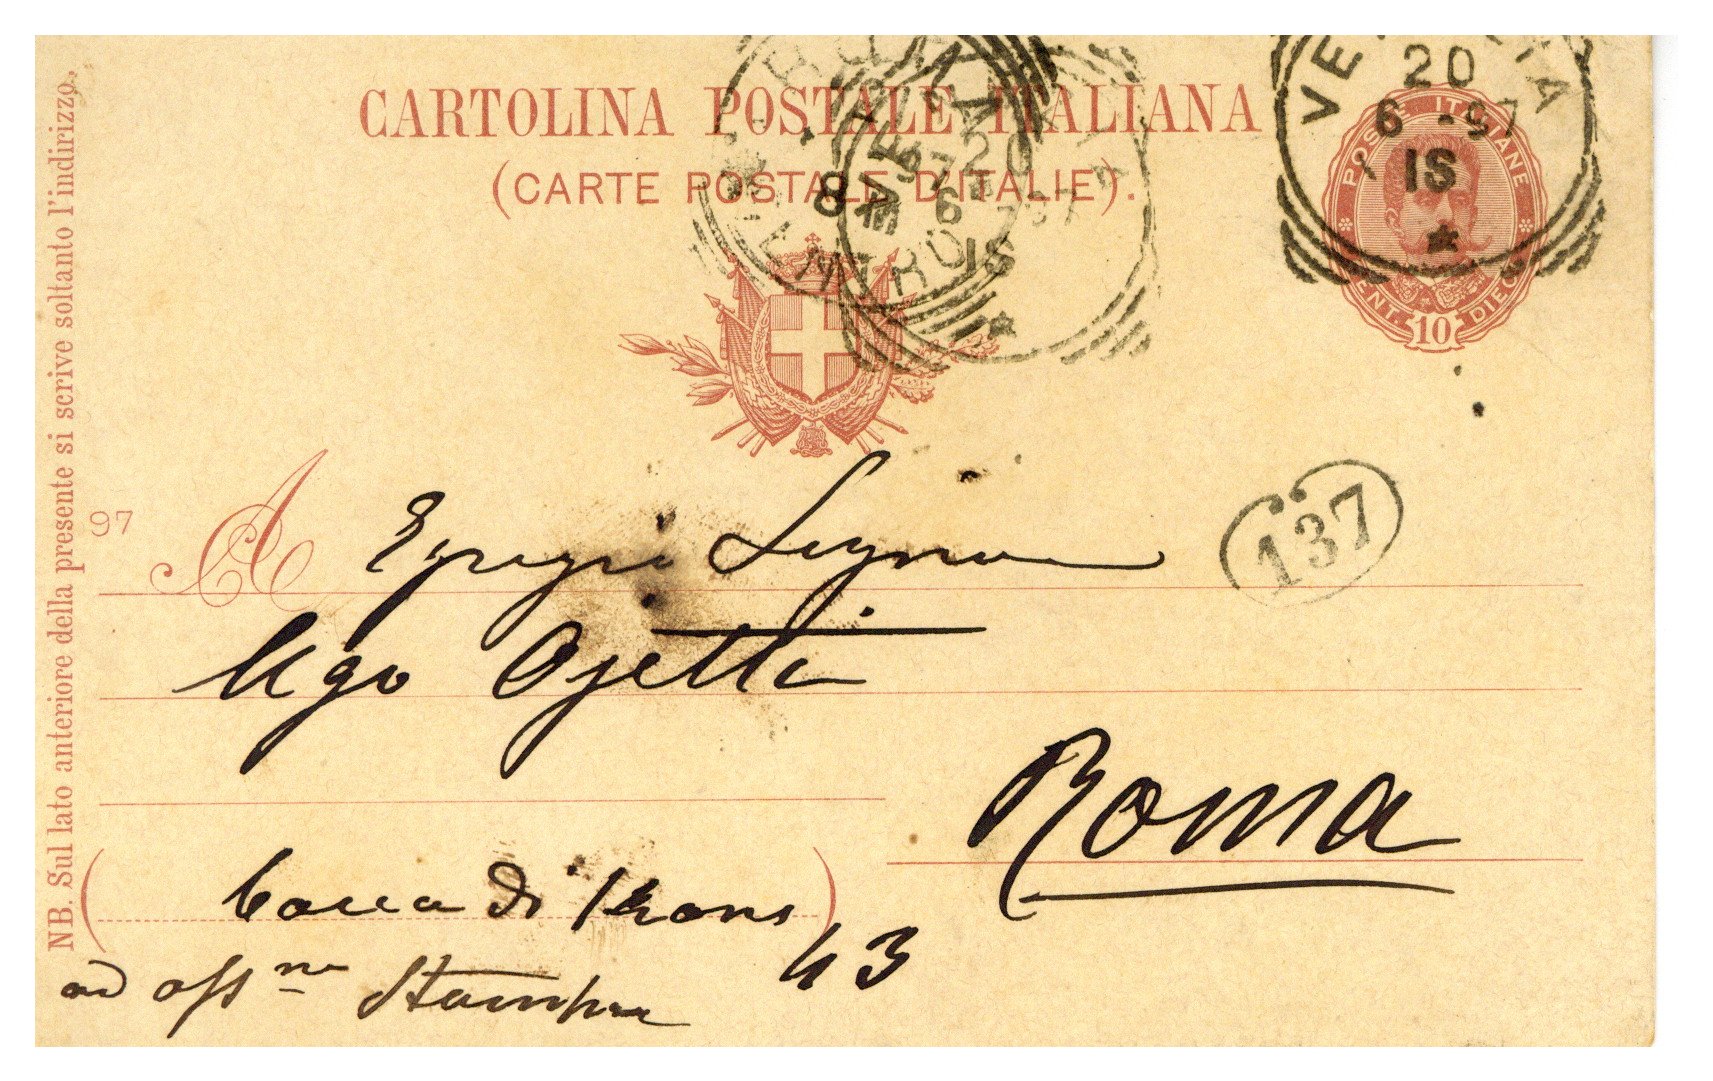 CARTOLINA POSTALE ITALIANA
(CARTE POSTALE D'ITALIE).
ROMA
CENTRO
97
8
20
6
IS
VENEZIA
20
6 -97
IS
POSTE ITALIANE
CENT. DIECI
10
NB. Sul lato anteriore della presente si scrive soltanto l'indirizzo.
97
137
A Egregio Signor
Ugo Ojetti
Roma
Bocca di
43
Stampa